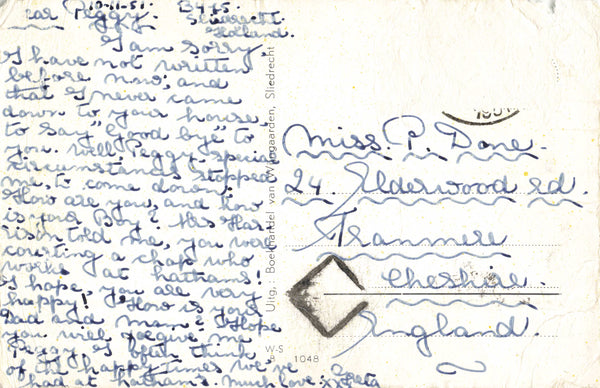 10-11-51. B415.
ear Peggy. Sliedrecht.
Holland.
I am sorry,
I have not written
before now, and
that I never came
down to your house,
to say "Good bye" to
you. Well, Peggy, special
circumstances stopped
me, to come down.
How are you, and how
is your Boy? Mrs Har-
rison told me, you were
courting a chap who
works at hathams!
I hope, you are very
happy! How is your
Dad and mam? I Hope
you will forgive me
Peggy, I often think
of the happy times we've
had at hatham's. Much love xx Greta
Uitg.: Boekhandel van Wijngaarden, Sliedrecht
W-S
1048
Miss. P. Done.
24. Elderwood rd.
Tranmere
Cheshire.
England.